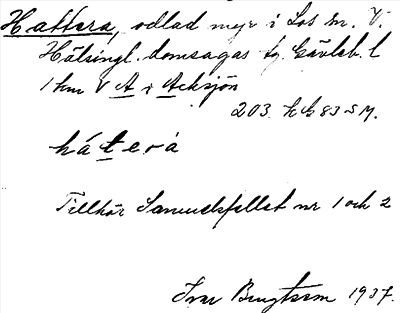 Hattera, odlad myr i Los sn. V.
Hälsingl. domsagas tg. Gävleb. l
1 km V A i Acksjön
203. h b 83 S M.
hátera
Tillhör Samuelsfallet nr 1 och 2
Ivar Bengtsson 1937.